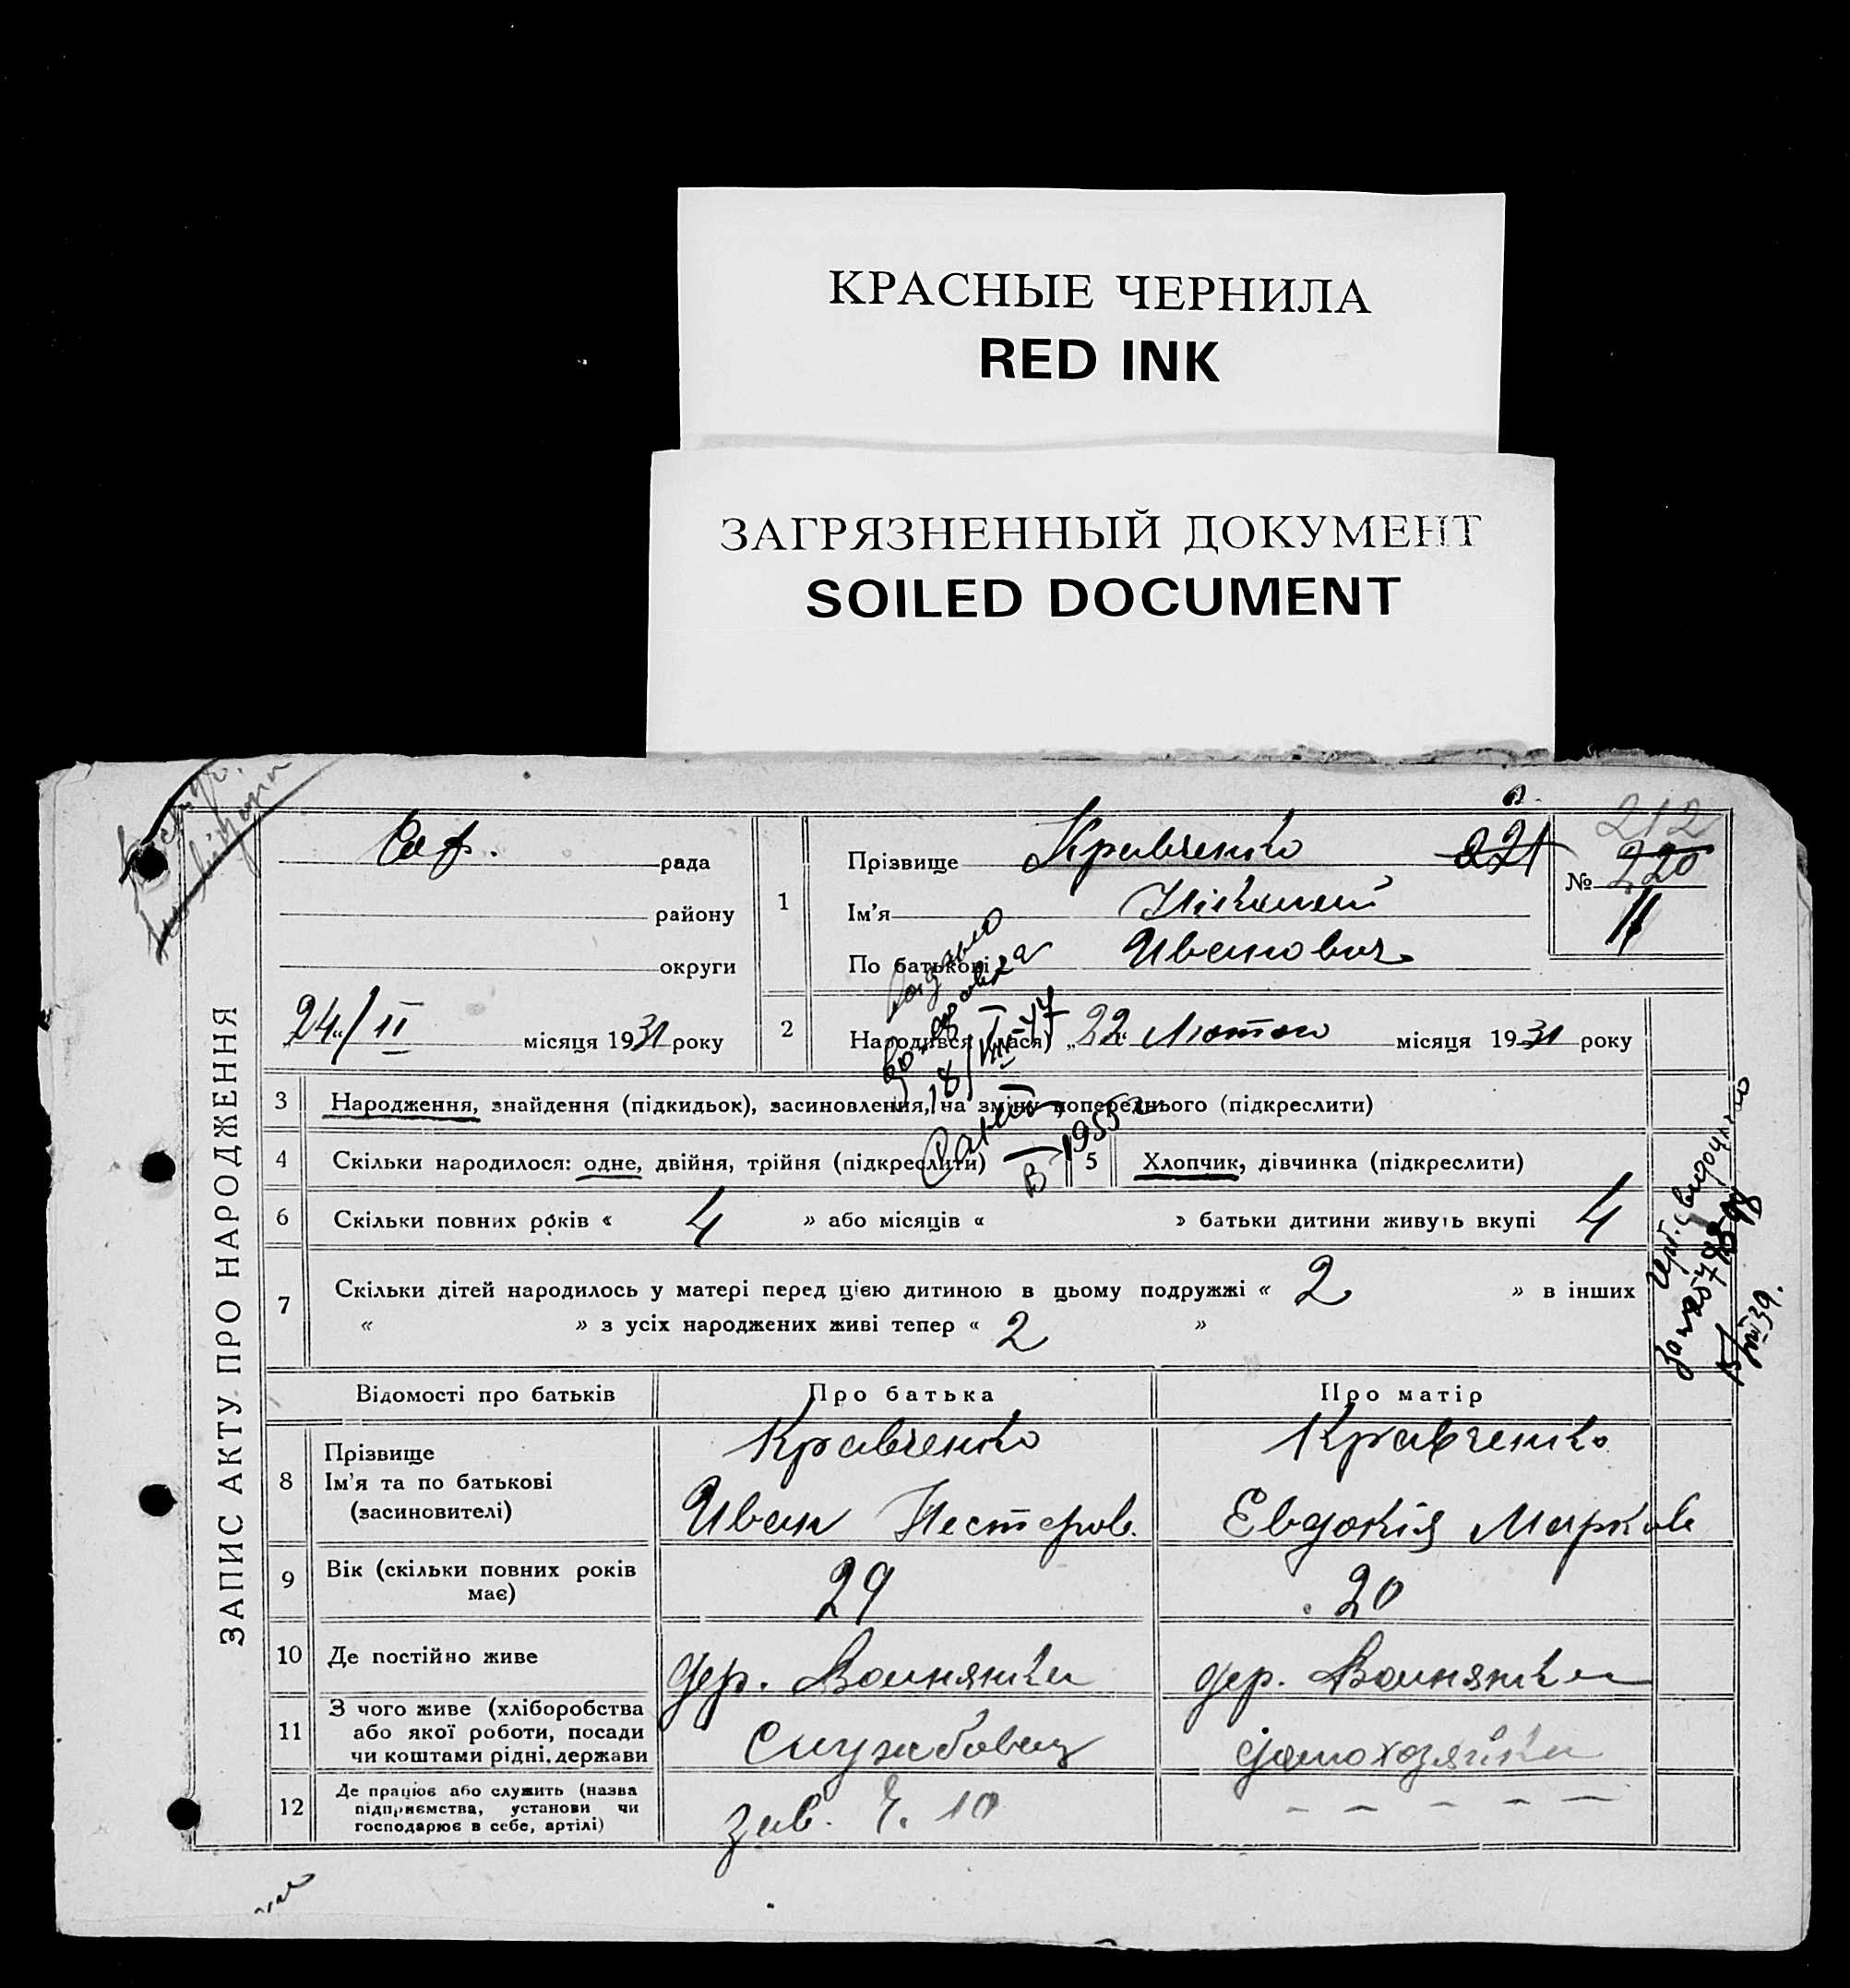 КРАСНЫЕ ЧЕРНИЛА
RED INK
ЗАГРЯЗНЕННЫЙ ДОКУМЕНТ
SOILED DOCUMENT
ЗАПИС АКТУ ПРО НАРОДЖЕННЯ
рада
району
округи
24/II місяця 1931 року
212
221
№ 220
11
1
Прізвище Кравченко
Ім'я
По батькові Иванович
2 Народився (лася) „22 Лютого місяця 1931 року
18/VIII-47
1955
3 Народження, знайдення (підкидьок), засиновлення, на зміну попереднього (підкреслити)
4 Скільки народилося: одне, двійня, трійня (підкреслити)
5 Хлопчик, дівчинка (підкреслити)
6 Скільки повних років « 4 » або місяців « » батьки дитини живуть вкупі 4
7 Скільки дітей народилось у матері перед цією дитиною в цьому подружжі « 2 » в інших
« » з усіх народжених живі тепер « 2 »
Відомості про батьків Про батька Про матір
8 Прізвище
Ім'я та по батькові
(засиновителі)
Кравченко
Иван Нестеров.
Кравченко
Евдокія Марков
9 Вік (скільки повних років
має)
29
20
10 Де постійно живе
дер.
дер.
11 З чого живе (хліборобства
або якої роботи, посади
чи коштами рідні, держави
Службовец
домохозяйка
12 Де працює або служить (назва
підприємства, установи чи
господарює в себе, артілі)
зав. 10
– – – – –